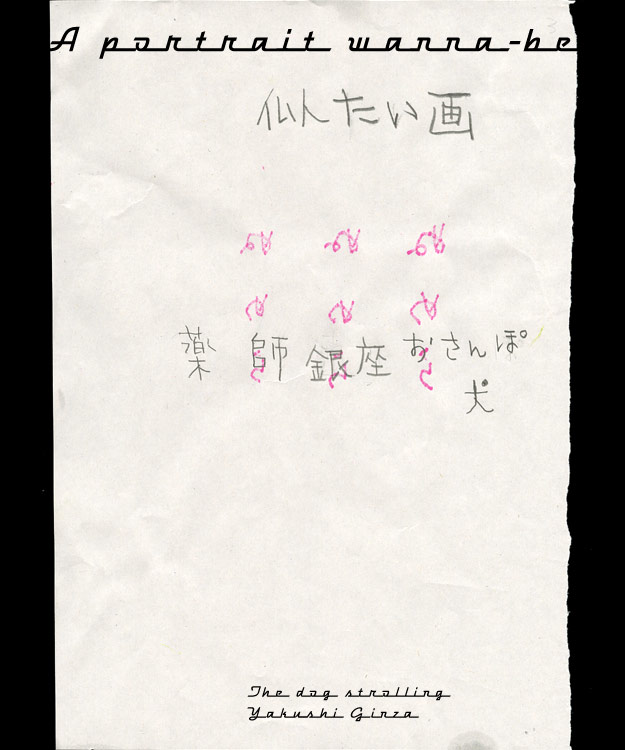 A portrait wanna-be
似たい画
薬師銀座おさんぽ
犬
The dog strolling
Yakushi Ginza